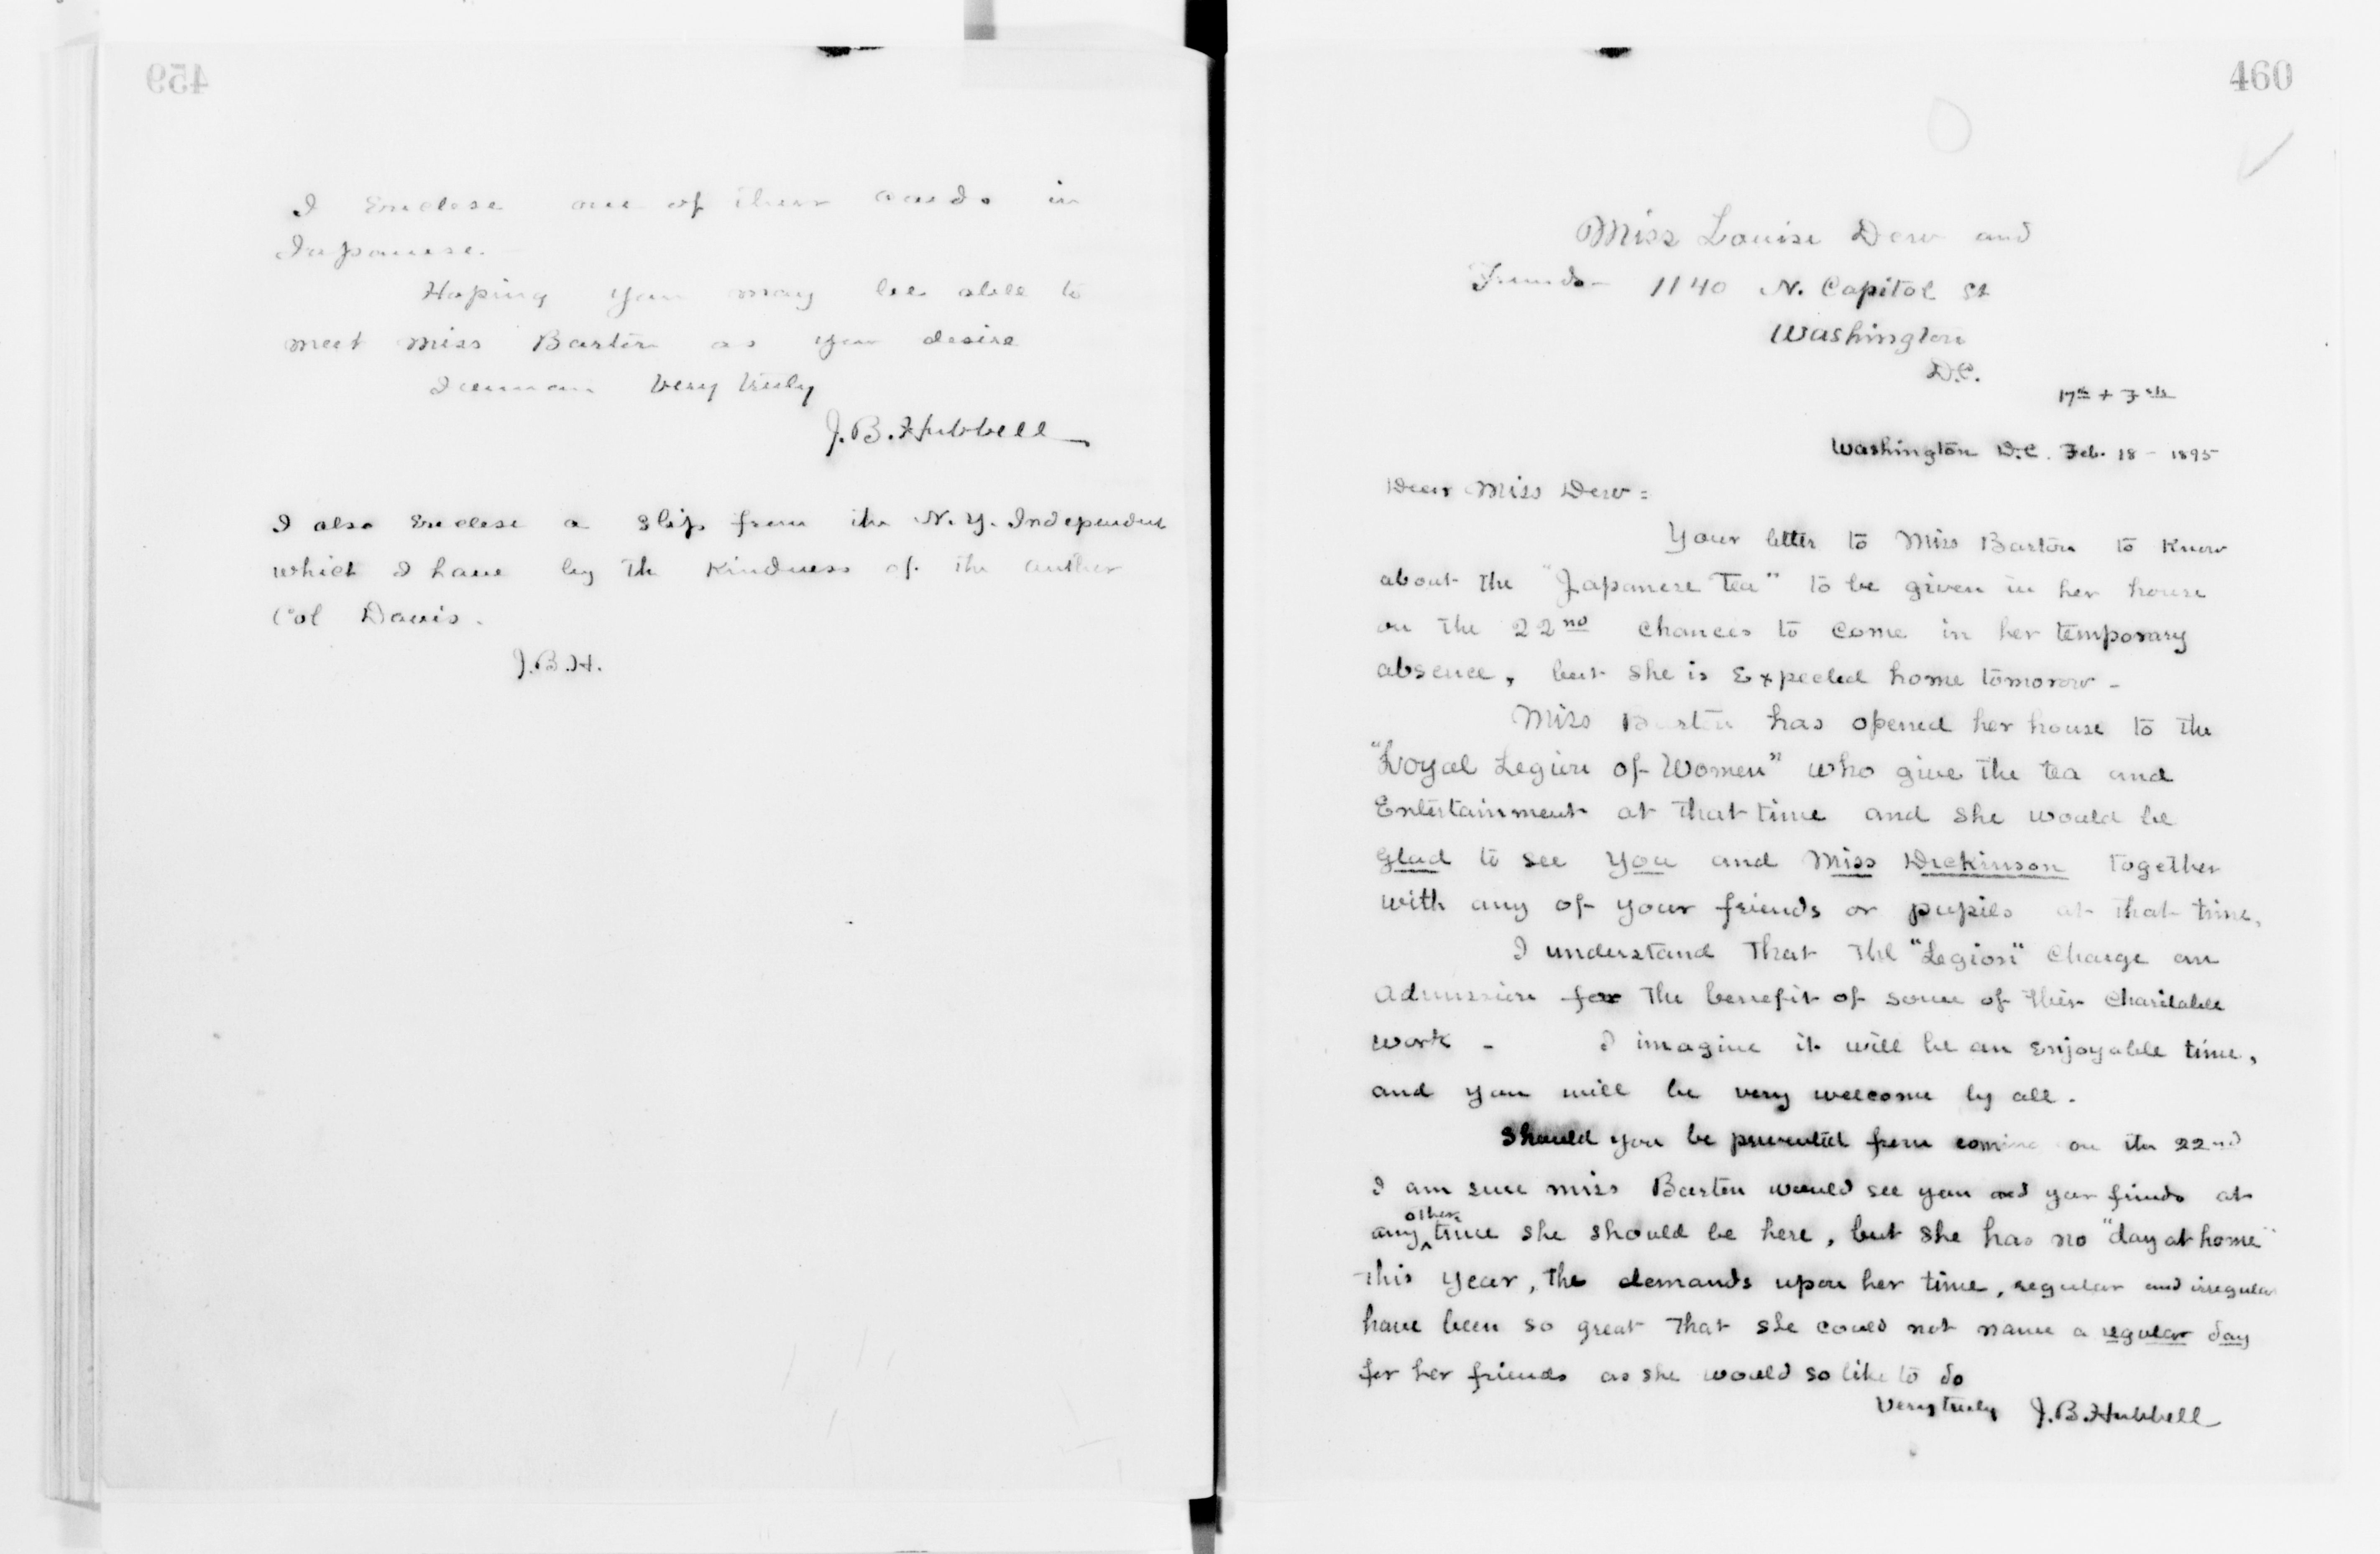 459
I Enclose one of their cards in
Japanese.
Hoping you may be able to
meet Miss Barton as you desire
I remain Very truly
J.B. Hubbell
I also Enclose a slip from the N.Y. Independent
which I have by the Kindness of the author
Col Davis.
J.B.H.
460
Miss Louise Dew and
Friends - 1140 N. Capitol St
Washington
D.C.
17th + F sts
Washington D.C. Feb. 18 - 1895
Dear Miss Dew =
Your letter to Miss Barton to Know
about the "Japanese Tea" to be given in her house
on the 22nd chances to come in her temporary
absence, but she is Expected home tomorow -
Miss Barton has opened her house to the
"Loyal Legion of Women" who give the tea and
Entertainment at that time and she would be
glad to see you and Miss Dickinson together
with any of your friends or pupils at that time.
I understand that the "Legion" Charge an
Admission for the benefit of some of their Charitable
work - I imagine it will be an Enjoyable time,
and you will be very welcome by all.
Should you be prevented from coming on the 22nd
I am sure Miss Barton would see you and your friends at
any other time she should be here, but she has no "day at home"
this year, the demands upon her time, regular and irregular
have been so great that she could not name a regular day
for her friends as she would so like to do
Very truly J.B. Hubbell